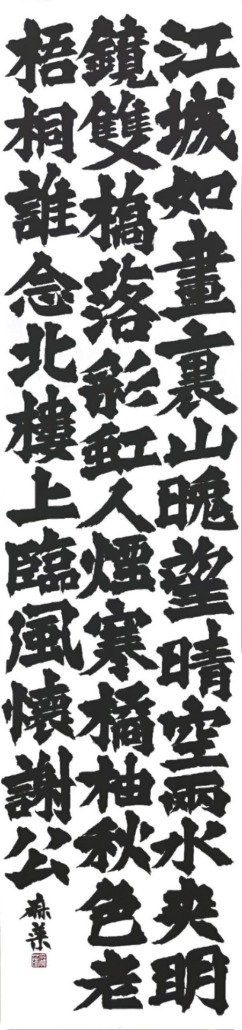 江城如畫裏山晚望晴空兩水夾明
鏡雙橋落彩虹人煙寒橘柚秋色老
梧桐誰念北樓上臨風懷謝公